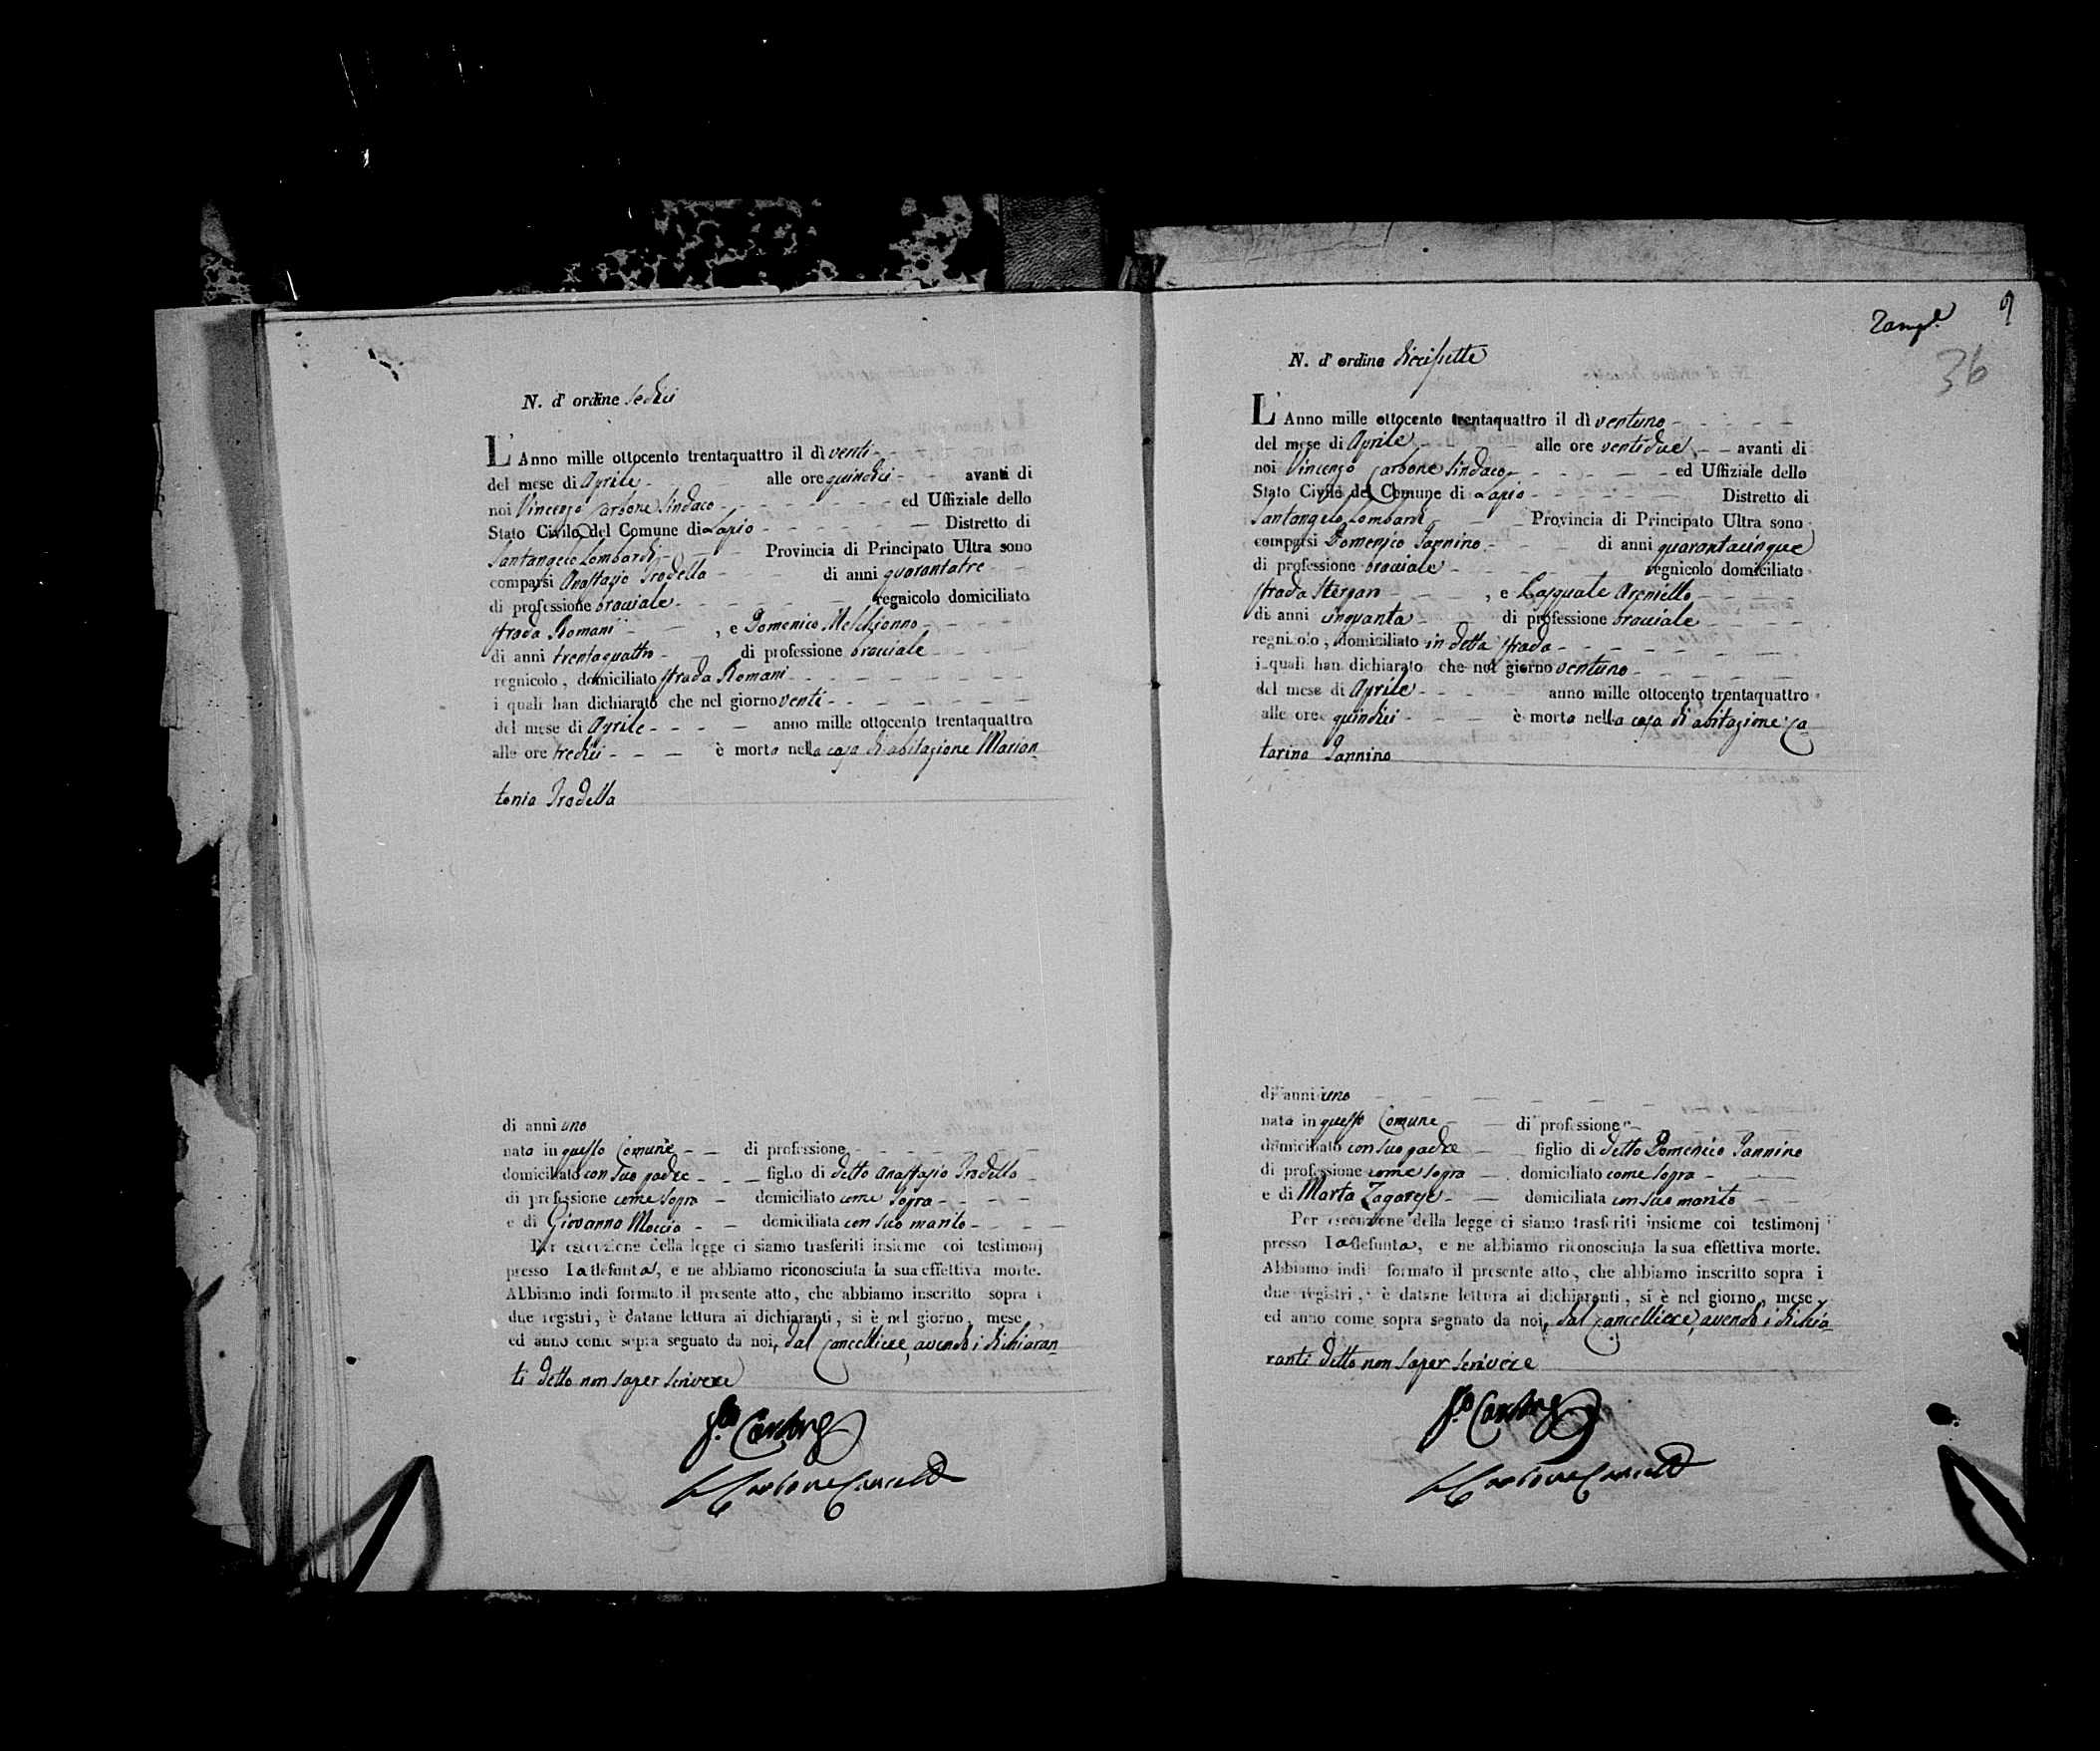 N. d' ordine sedici
L' Anno mille ottocento trentaquattro il dì venti
del mese di Aprile alle ore quindici avanti di
noi Vincenzo Carbone Sindaco ed Uffiziale dello
Stato Civile del Comune di Lapio Distretto di
Santangelo Lombardi Provincia di Principato Ultra sono
comparsi Anastasio Trodella di anni quarantatre
di professione bracciale regnicolo domiciliato
strada Romani , e Domenico Melchionno
di anni trentaquattro di professione bracciale
regnicolo , domiciliato strada Romani
i quali han dichiarato che nel giorno venti
del mese di Aprile anno mille ottocento trentaquattro
alle ore tredici è morta nella casa di abitazione Marian
tonia Trodella
di anni uno
nata in questo Comune di professione
domiciliato con suo padre figlio di detto Anastasio Trodella
di professione come sopra domiciliato come sopra
e di Giovanna Moccia domiciliata con suo marito
Per esecuzione della legge ci siamo trasferiti insieme coi testimonj
presso la defunta, e ne abbiamo riconosciuta la sua effettiva morte.
Abbiamo indi formato il presente atto, che abbiamo inscritto sopra i
due registri, è datane lettura ai dichiaranti, si è nel giorno, mese,
ed anno come sopra segnato da noi, dal Cancelliere, avendo i dichiaran
ti detto non saper scrivere
Carbone
Carbone Cancell
9
36
N. d' ordine diecisette
L' Anno mille ottocento trentaquattro il dì ventuno
del mese di Aprile alle ore ventidue avanti di
noi Vincenzo Carbone Sindaco ed Uffiziale dello
Stato Civile del Comune di Lapio Distretto di
Santangelo Lombardi Provincia di Principato Ultra sono
comparsi Domenico Iannino di anni quarantacinque
di professione bracciale regnicolo domiciliato
strada , e Pasquale
di anni cinquanta di professione bracciale
regnicolo , domiciliato in detta strada
i quali han dichiarato che nel giorno ventuno
del mese di Aprile anno mille ottocento trentaquattro
alle ore quindici è morta nella casa di abitazione Ca
tarina Iannino
di anni uno
nata in questo Comune di professione
domiciliato con suo padre figlio di detto Domenico Iannino
di professione come sopra domiciliato come sopra
e di Marta Zagarese domiciliata con suo marito
Per esecuzione della legge ci siamo trasferiti insieme coi testimonj
presso la defunta, e ne abbiamo riconosciuta la sua effettiva morte.
Abbiamo indi formato il presente atto, che abbiamo inscritto sopra i
due registri, è datane lettura ai dichiaranti, si è nel giorno, mese,
ed anno come sopra segnato da noi, dal Cancelliere, avendo i dichia
ranti detto non saper scrivere
Carbone
Carbone Cancell